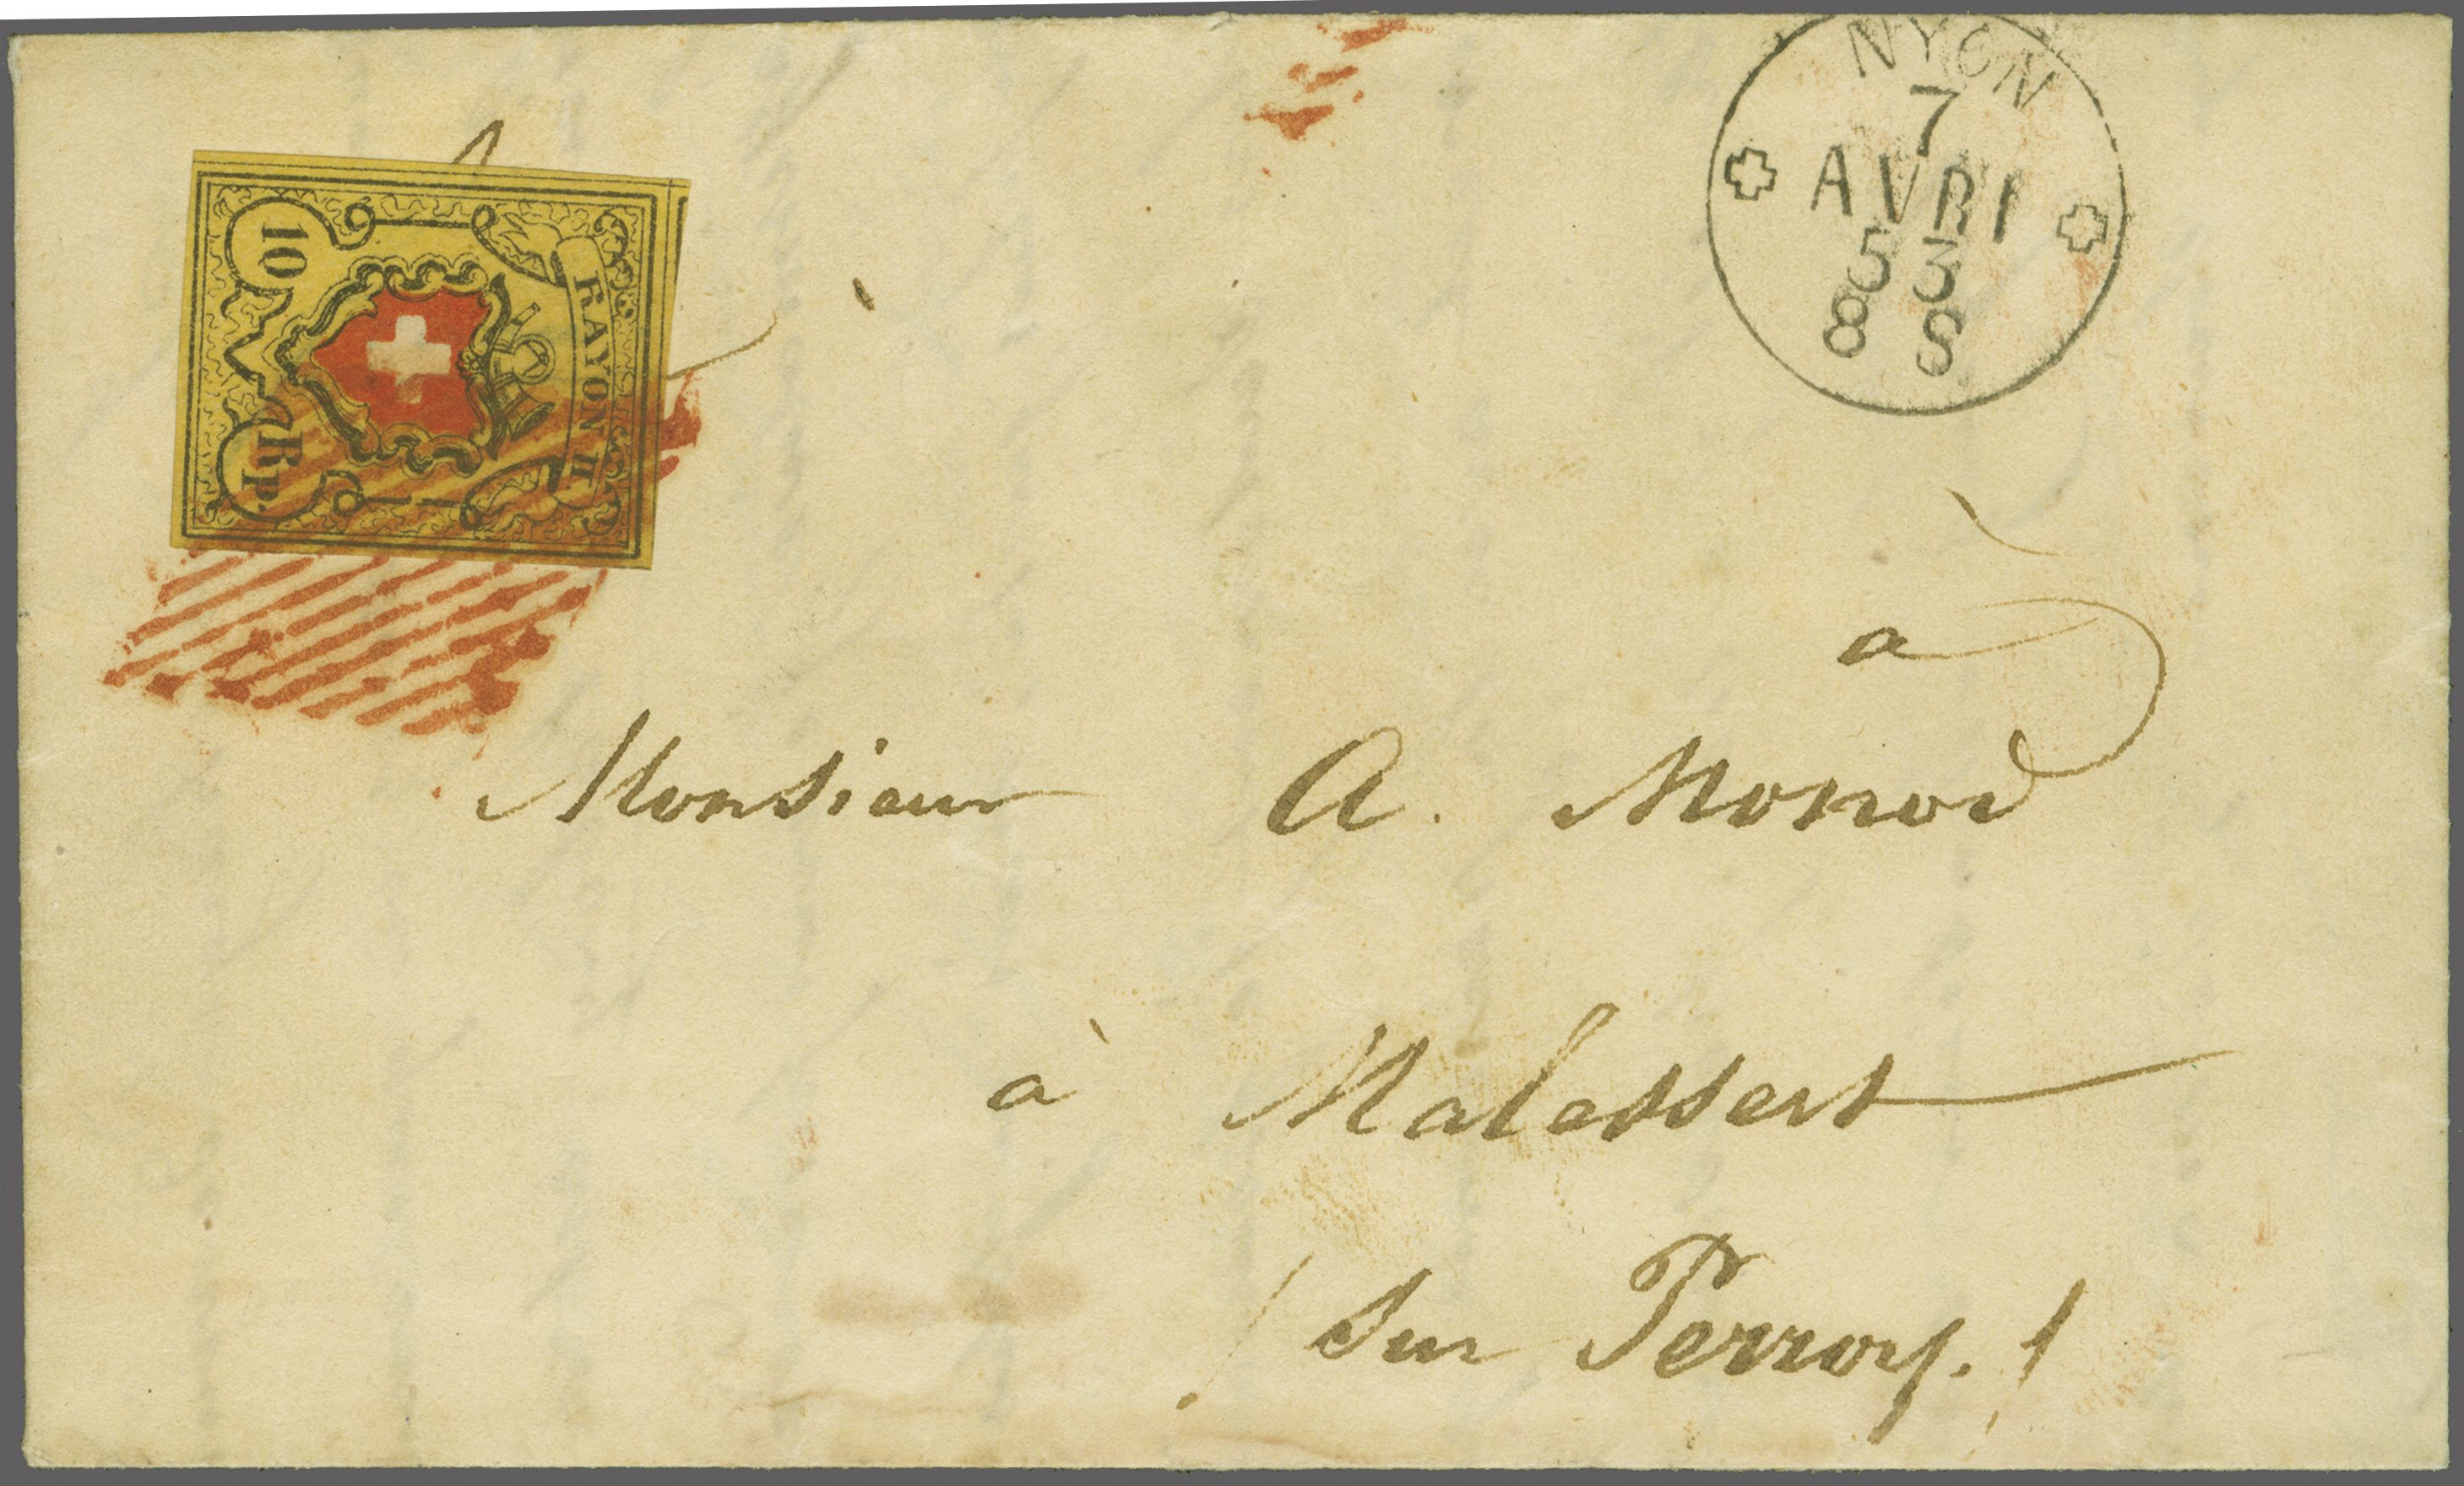 10 Rp.
RAYON II
NYON
7
AVRI
53
8 S
a
Monsieur A. Monod
à Malessert
/ sur Perroy. /